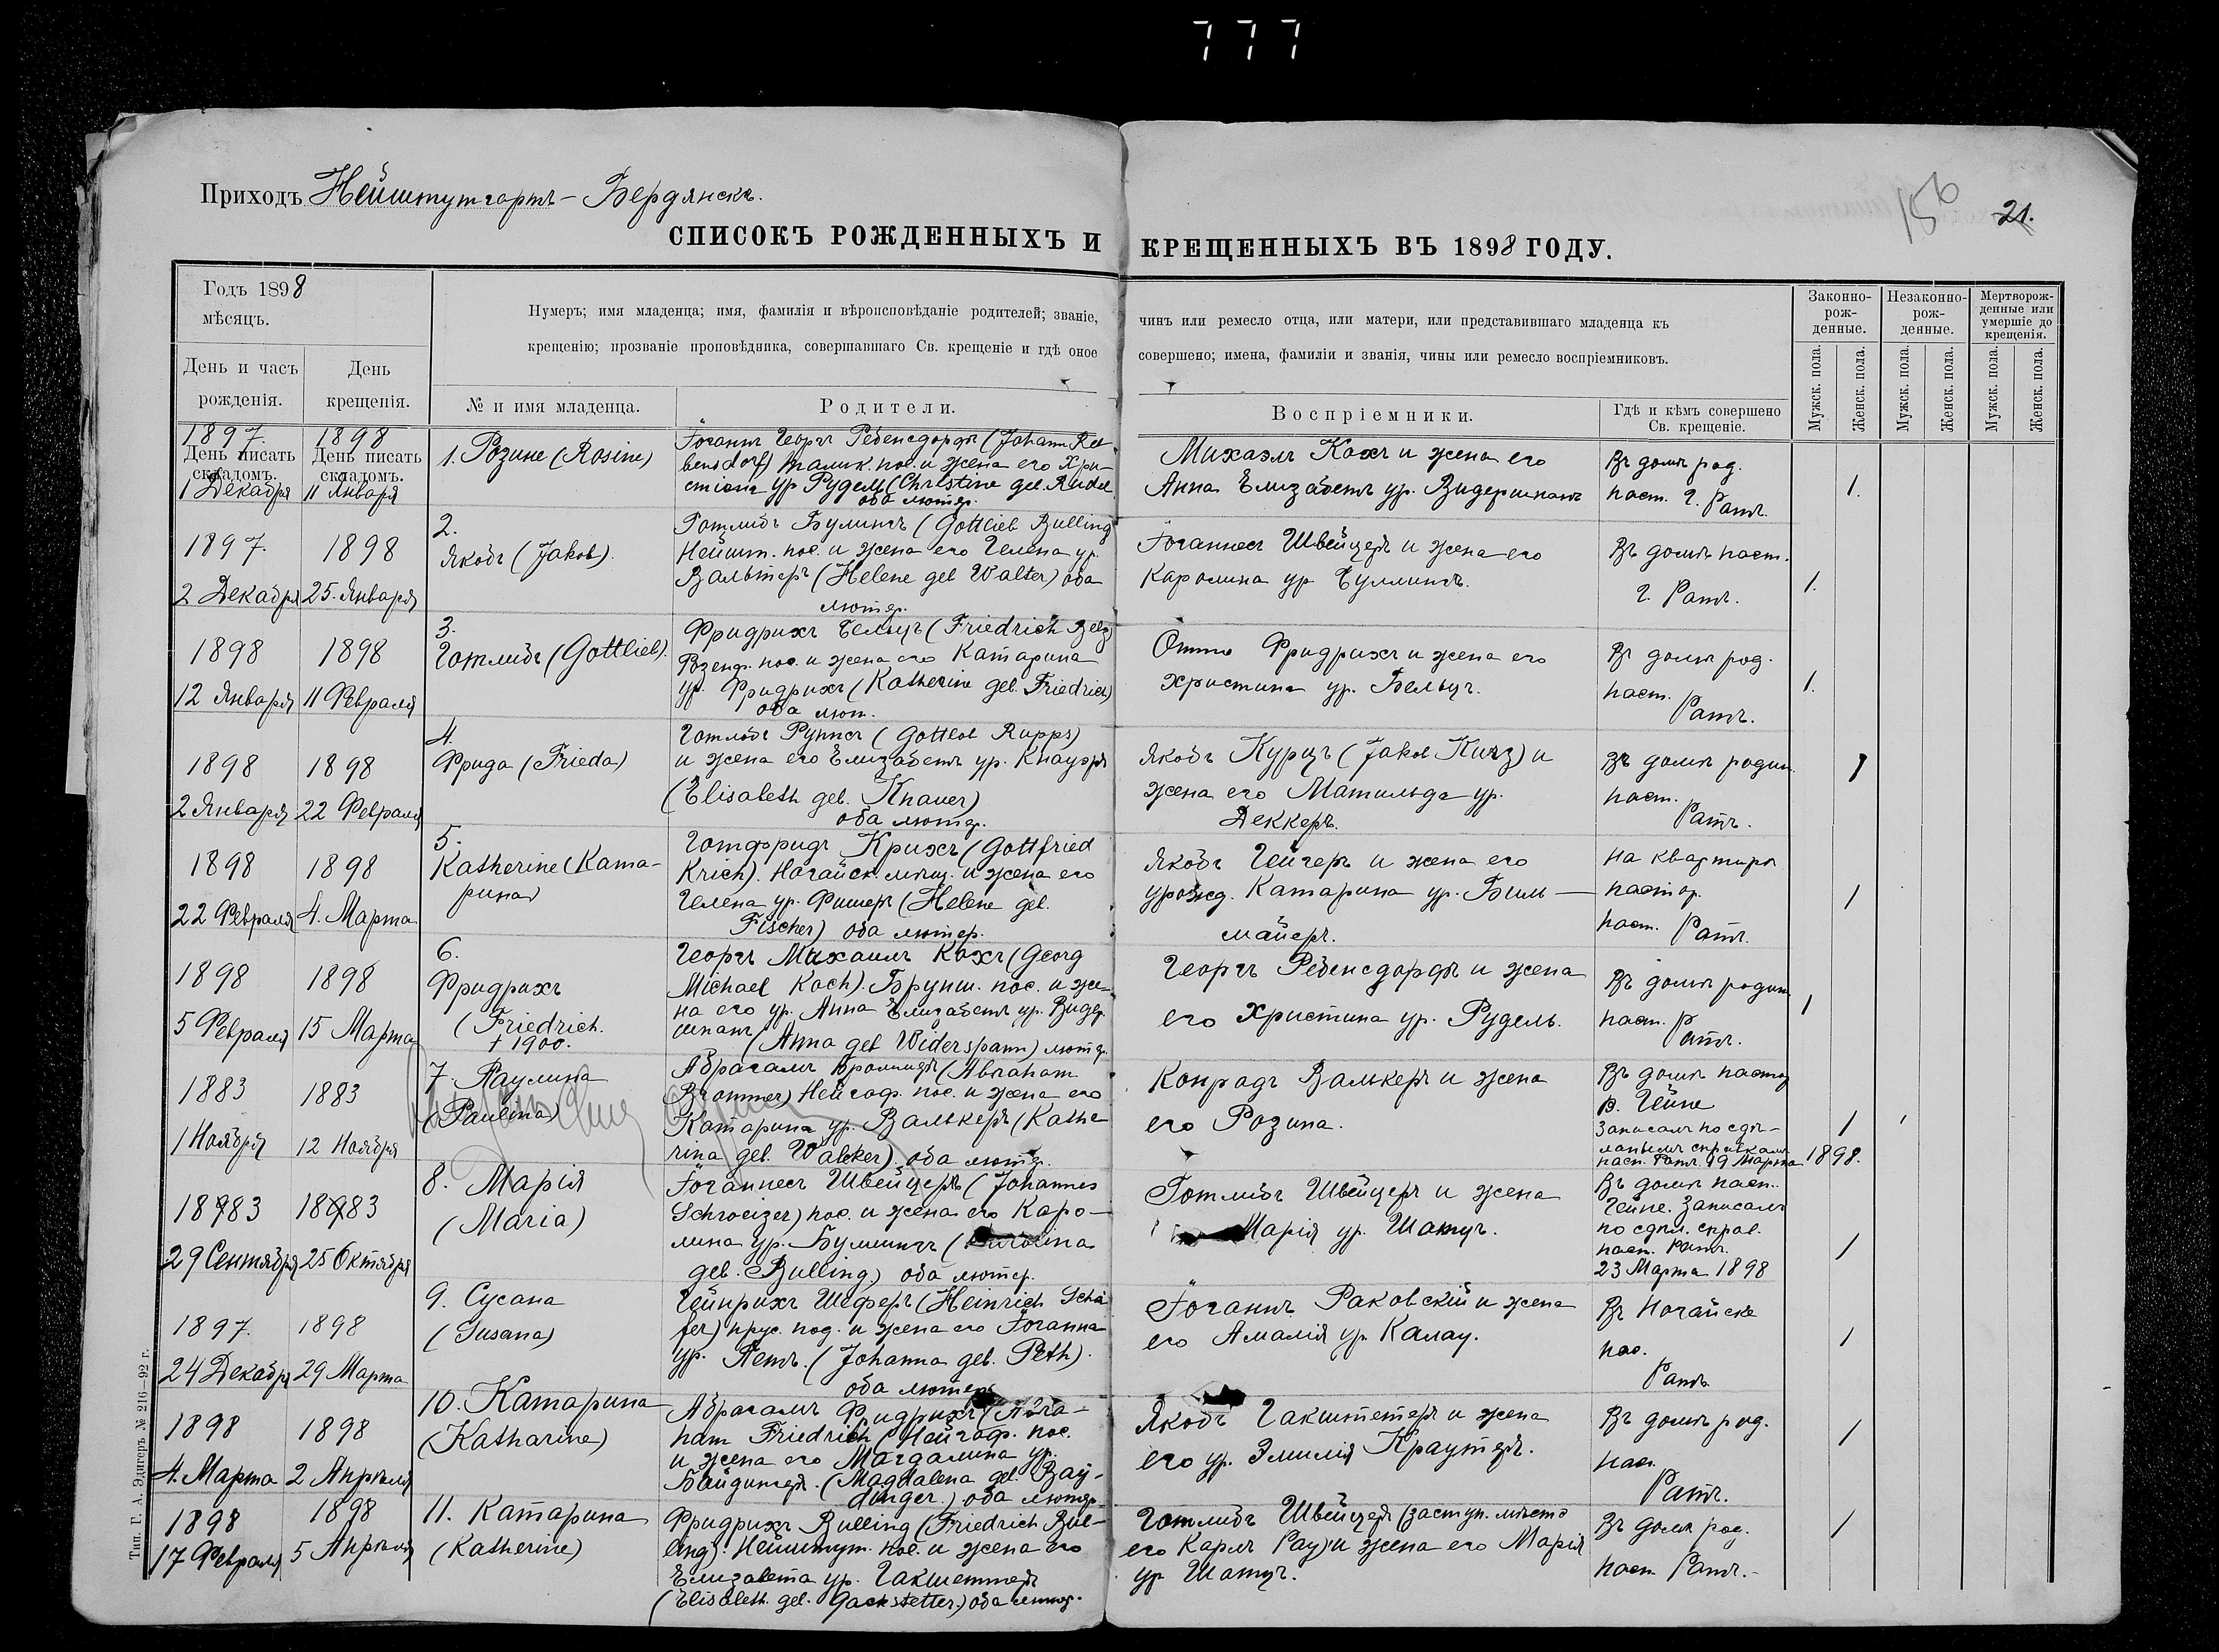 777
Приходъ Нейштутгартъ - Бердянскъ.
156
21.
СПИСОКЪ РОЖДЕННЫХЪ И КРЕЩЕННЫХЪ ВЪ 1898 ГОДУ.
Годъ 1898
мѣсяцъ.
День и часъ
рожденія.
День
крещенія.
Нумеръ; имя младенца; имя, фамилія и вѣроисповѣданіе родителей; званіе, чинъ или ремесло отца, или матери, или представившаго младенца къ
крещенію; прозваніе проповѣдника, совершавшаго Св. крещеніе и гдѣ оное совершено; имена, фамиліи и званія, чины или ремесло воспріемниковъ.
№ и имя младенца.
Родители.
Воспріемники.
Гдѣ и кѣмъ совершено
Св. крещеніе.
Законно-
рож-
денные.
Незаконно-
рож-
денные.
Мертворож-
денные или
умершіе до
крещенія.
Мужск. пола.
Женск. пола.
Мужск. пола.
Женск. пола.
Мужск. пола.
Женск. пола.
1897.
День писать
складомъ.
1 Декабря
1898
День писать
складомъ.
11 Января
1. Розине (Rosine)
Іоганъ Георгъ Ребенсдорфъ (Johann Reb
bensdorf) пос. и жена его Хри-
стiана ур Рудель (Christine gel. Rudel
оба лютер.
Михаэлъ Кохъ и жена его
Анна Елизабетъ ур. Видершпанъ
Въ домѣ род.
паст. Г. Ратъ.
1.
1897.
2 Декабря
1898
25. Января
2.
Якобъ (Jakob).
Готлибъ Булингъ (Gottlieb Bulling
Нейшт. пос. и жена его Гелена ур.
Вальтеръ (Helene geb Walter) оба
лютер.
Іоганнесъ Швейцеръ и жена его
Каролина ур Буллингъ.
Въ домѣ паст.
Г. Ратъ.
1.
1898
12 Января
1898
11 Февраля
3.
Готлибъ (Gottlieb).
Фридрихъ Бельцъ (Friedrich Belz)
Розенф. пос. и жена его Катарина
ур. Фридрихъ (Katherine geb. Friedrich)
оба лют.
Отто Фридрихъ и жена его
Христина ур. Бельцъ.
Въ домѣ род.
паст.
Ратъ.
1.
1898
2 Января
1898
22 Февраля
4.
Фрида (Frieda)
Готлобъ Руппсъ (Gottlob Rupps)
и жена его Елизабетъ ур. Кнауэръ
(Elisabeth geb. Knauer)
оба лютер.
Якобъ Курцъ (Jakob Kurz) и
жена его Матильда ур.
Деккеръ.
въ домѣ родит.
паст.
Ратъ.
1
1898
22 Февраля
1898
4. Марта
5.
Katherine (Ката-
рина)
Готфридъ Крихъ (Gottfried
Krich). Ногайск. мѣщ. и жена его
Гелена ур. Фишеръ (Helene geb.
Fischer) оба лютер.
Якобъ Гейгеръ и жена его
урожд. Катарина ур. Биль-
майеръ.
На квартирѣ
пастор.
паст. Ратъ.
1
1898
5 Февраля
1898
15 Марта
6.
Фридрихъ
(Friedrich.
† 1900.
Георгъ Михаилъ Кохъ (Georg
Michael Koch). Брунш. пос. и же-
на его ур. Анна Елизабетъ ур. Видер.
шпанъ
(Anna geb Widerspann) лютер.
Георгъ Ребенсдорфъ и жена
его Христина ур. Рудель.
Въ домѣ родит
паст. Ратъ.
1
1883
1 Ноября
1883
12 Ноября
7. Паулина
(Paulina)
Абрагамъ Броммеръ (Abraham
Brommer) Нейгоф. пос. и жена его
Катарина ур. Валькеръ (Kathe
rina geb. Walcker) оба лютер.
Конрадъ Валькеръ и жена
его Розина.
Въ домѣ пастор
В. Гейне
Записалъ по сдѣ-
ланнымъ справкамъ
паст. Ратъ. 19 Марта 1898.
1
18983
29 Сентября
18983
25 Октября
8. Марія
(Maria)
Іоганнесъ Швейцеръ (Johannes
Schweizer) пос. и жена его Каро-
лина ур. Булингъ (Karolina
geb. Bulling.) оба лютер.
Готлибъ Швейцеръ и жена
Марія ур. Шатцъ.
Въ домѣ паст.
Гейне. Записалъ
по сдѣл. справ.
паст. Ратъ.
23 Марта 1898
1
1897.
24 Декабря
1898
29 Марта
9. Сусана
(Susana)
Гейнрихъ Шеферъ (Heinrich Schä
fer) прус. под. и жена его Іоганна
ур. Петъ. (Johanna geb. Peth).
оба лютер.
Іоганъ Раковскій и жена
его Амалія ур. Калау.
Въ Ногайскѣ
пас.
Ратъ
1
1898
4. Марта
1898
2 Апрѣля
10. Катарина
(Katharine)
Абрагамъ Фридрихъ (Abra-
ham Friedrich) Нейгоф. пос.
и жена его Магдалина ур.
Байдингеръ. (Magdalena geb. Bay-
dinger.) оба лютер.
Якобъ Гакштетеръ и жена
его ур. Эмилія Краутеръ.
Въ домѣ род.
пас.
Ратъ.
1
1898
17 Февраля
1898
5 Апрѣля
11. Катарина
(Katherine)
Фридрихъ Bulling (Friedrich Bul-
ling). Нейштут. пос. и жена его
Елизавета ур. Гакштеттеръ
(Elisabeth. geb. Gackstetter.) оба лютер.
Готлибъ Швейцеръ (заступ. мѣсто
его Карлъ Рау) и жена его Марія
ур Шатцъ.
Въ домѣ род.
паст Ратъ.-
1
Тип. Г. А. Эдигеръ № 216-92 г.